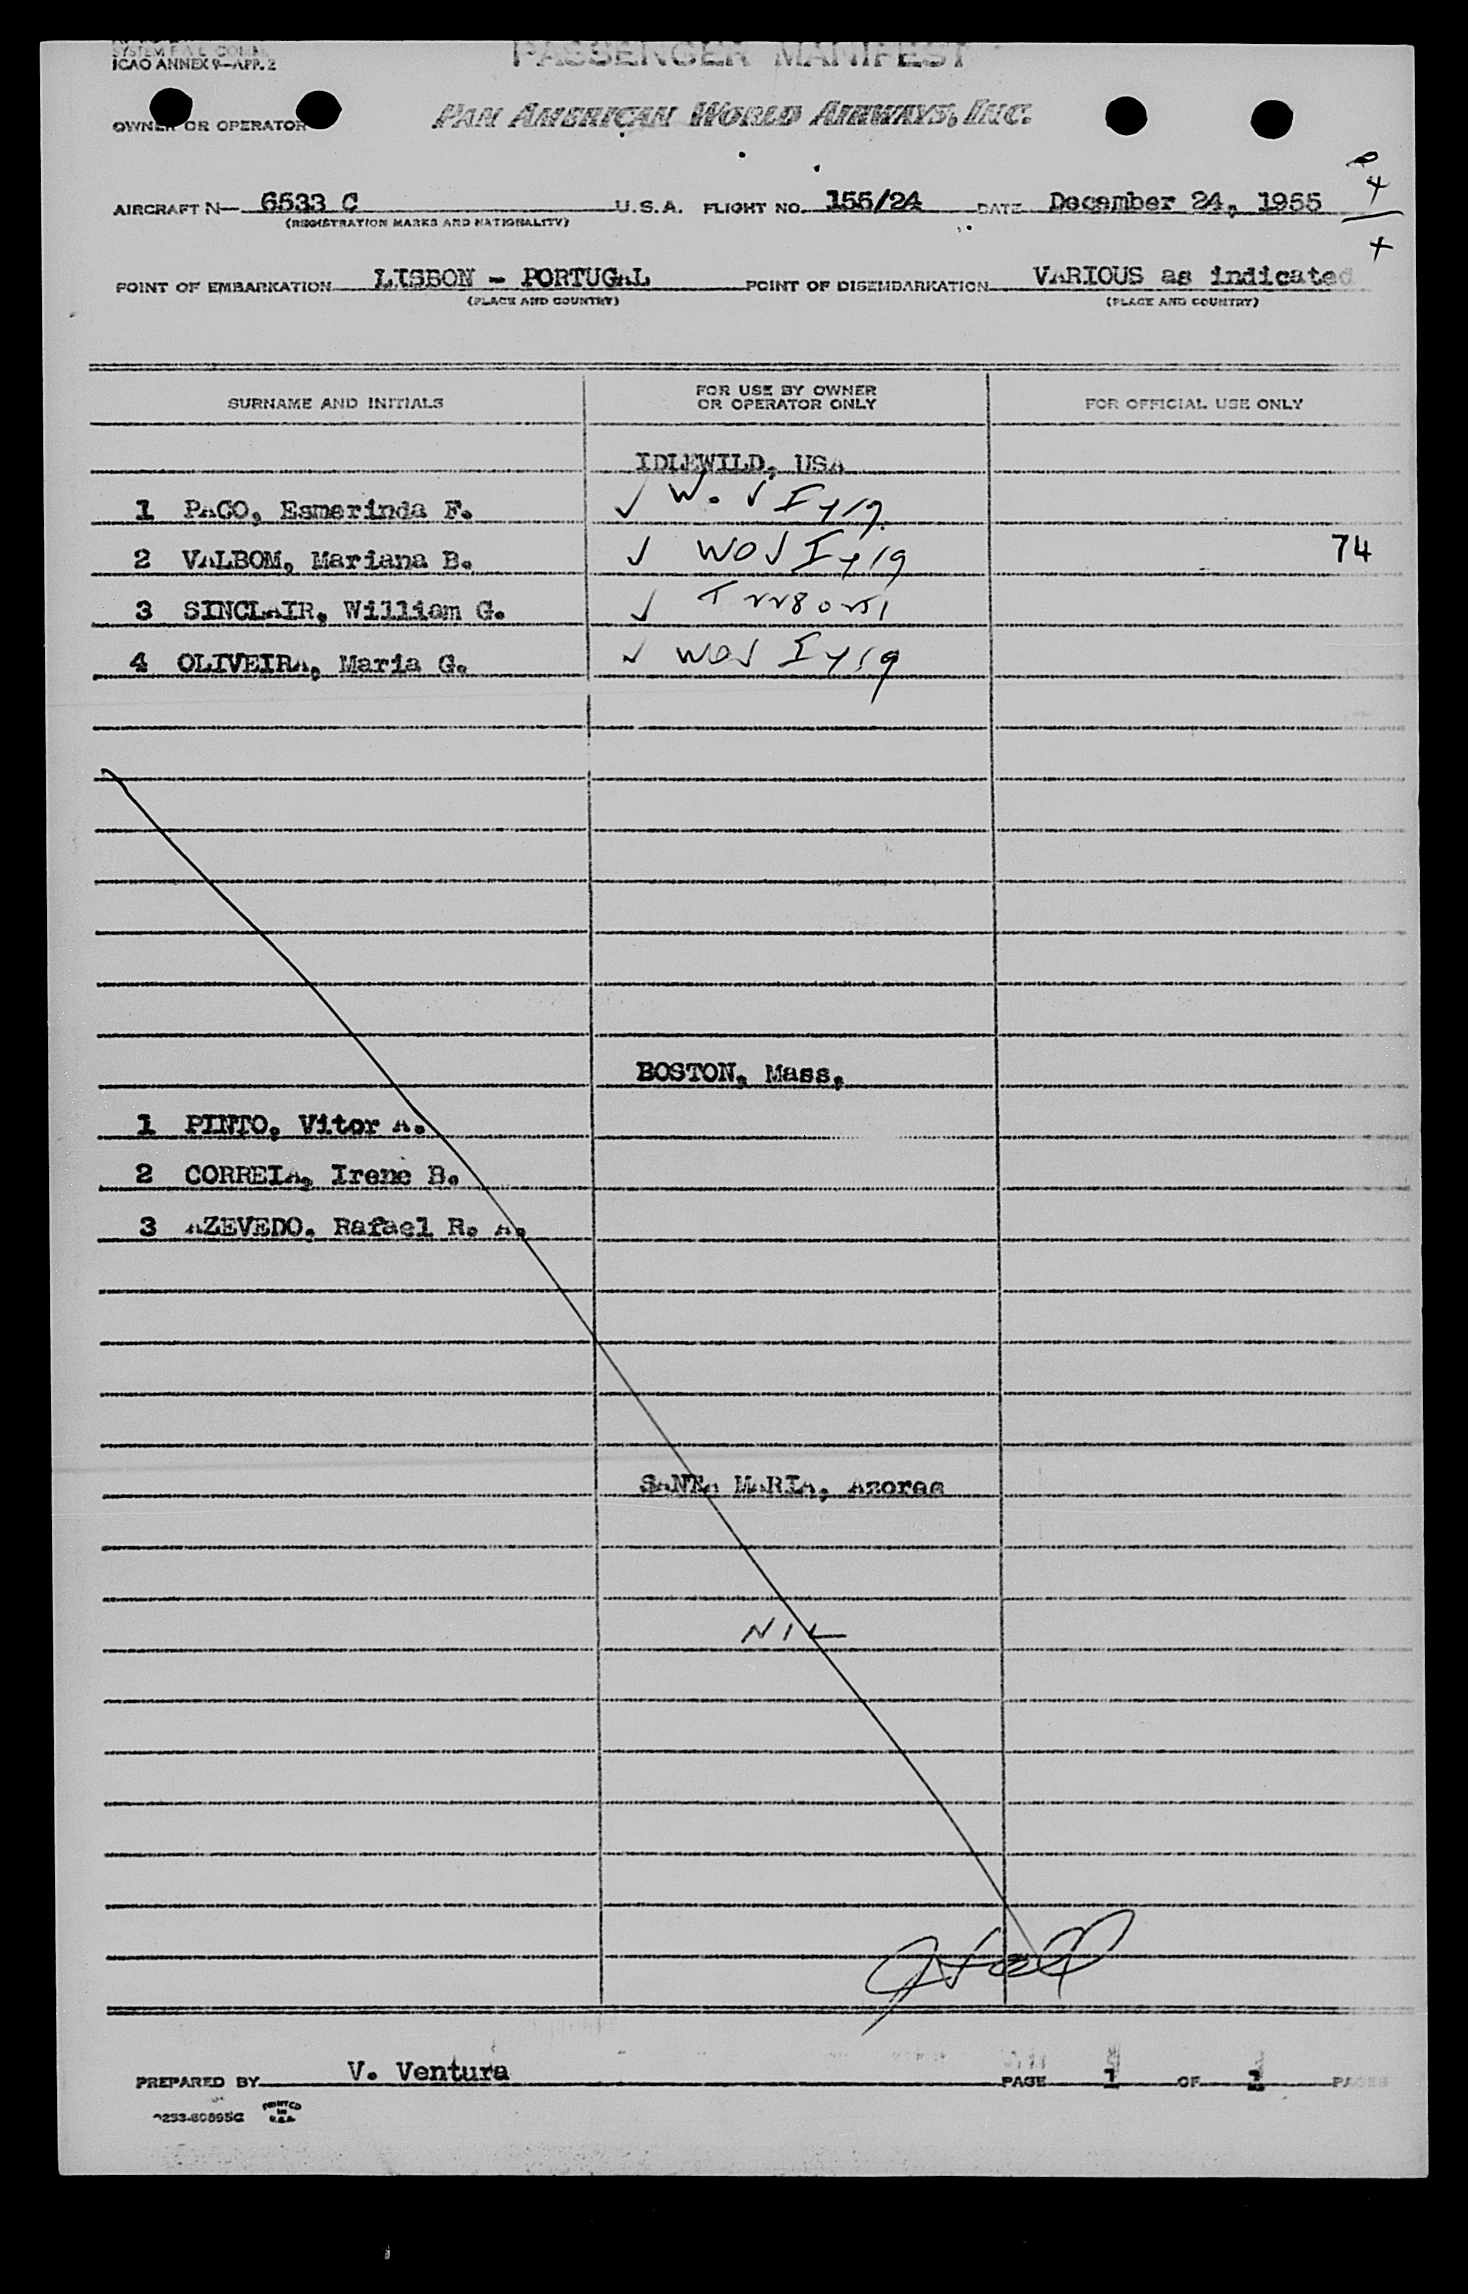 PASSENGER MANIFEST
ICAO ANNEX 9—APP. 2
OWNER OR OPERATOR PAN AMERICAN WORLD AIRWAYS, INC.
4
AIRCRAFT N— 6533 C U.S.A. FLIGHT NO. 155/24 DATE December 24, 1955
(REGISTRATION MARKS AND NATIONALITY)
4
POINT OF EMBARKATION LISBON - PORTUGAL POINT OF DISEMBARKATION VARIOUS as indicated
(PLACE AND COUNTRY) (PLACE AND COUNTRY)
SURNAME AND INITIALS FOR USE BY OWNER OR OPERATOR ONLY FOR OFFICIAL USE ONLY
IDLEWILD, USA
1 PACO, Esmerinda F.
2 VALBOM, Mariana B. 74
3 SINCLAIR, William G.
4 OLIVEIRA, Maria G.
BOSTON, Mass,
1 PINTO, Vitor A.
2 CORREIA, Irene B.
3 AZEVEDO, Rafael R. A.
SANTA MARIA, Azores
NIL
PREPARED BY V. Ventura PAGE 1 OF 1 PAGES
PRINTED IN U.S.A.